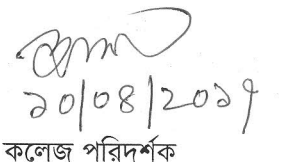 ১০/০৪/২০১৭
কলেজ পরিদর্শক